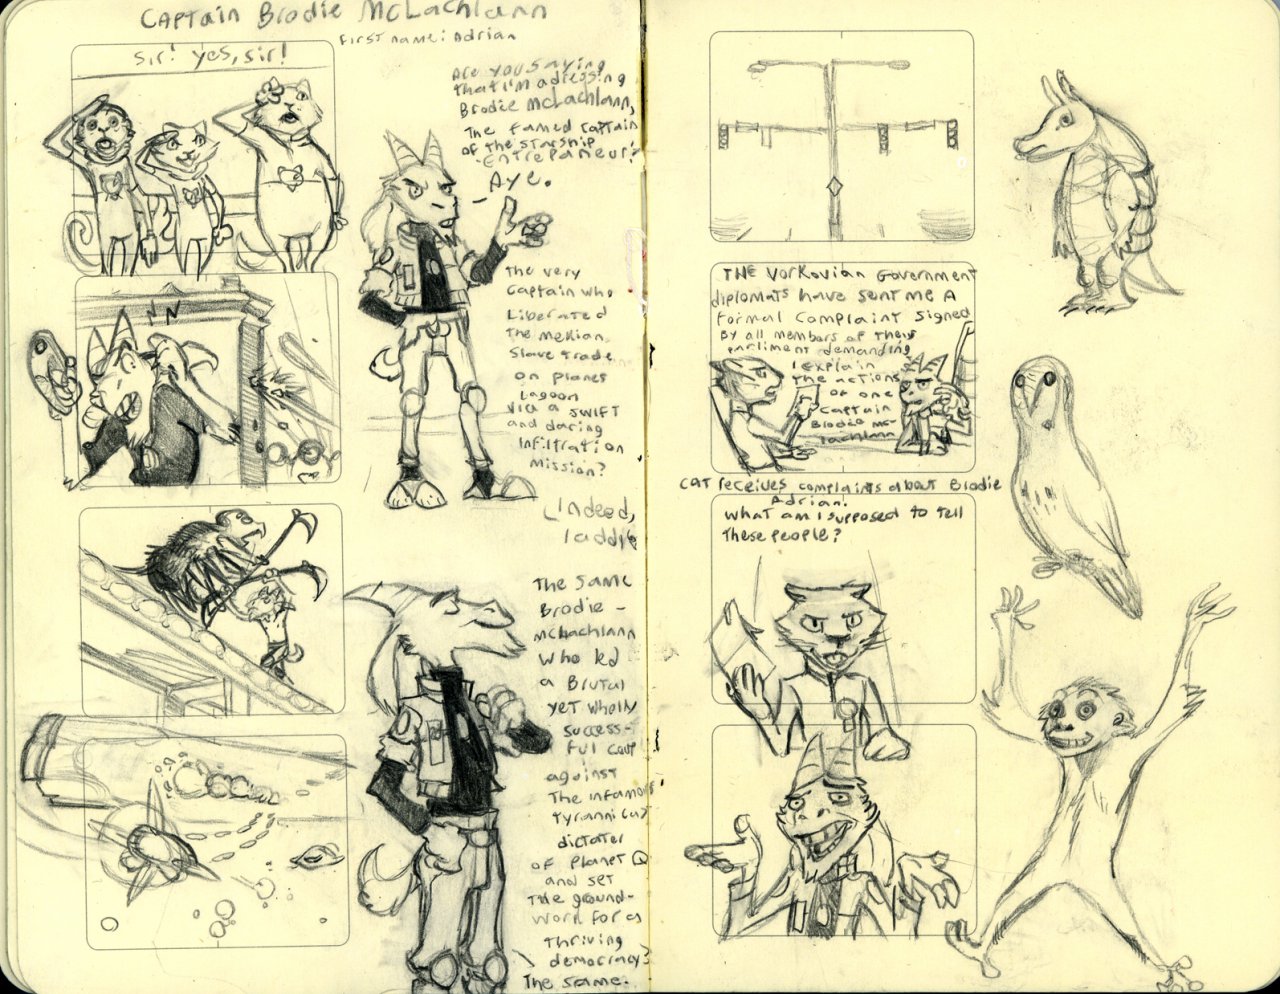 Captain Brodie McLachlann
First name: Adrian
Sir! yes, sir!
Are you saying
that I'm adressing
Brodie McLachlann,
The famed captain
of the starship
Entrepaneur?
Aye.
The very
captain who
Liberated
The meKian
Slave trade
on Planet
Lagoon
via a swift
and daring
Infiltration
Mission?
Indeed,
laddie
The same
Brodie-
McLachlann
who led
a Brutal
yet wholly
success-
ful coup
against
The infamous
tyrannical
dictater
of Planet Q
and set
The ground-
work for a
Thriving
democracy?
The same.
The Vorkovian Government
diplomats have sent me a
formal complaint signed
by all members of their
parliment demanding
I explain
The actions
of one
captain
Brodie Mc-
lachlann
Cat receives complaints about Brodie
Adrian!
What am I supposed to tell
these people?